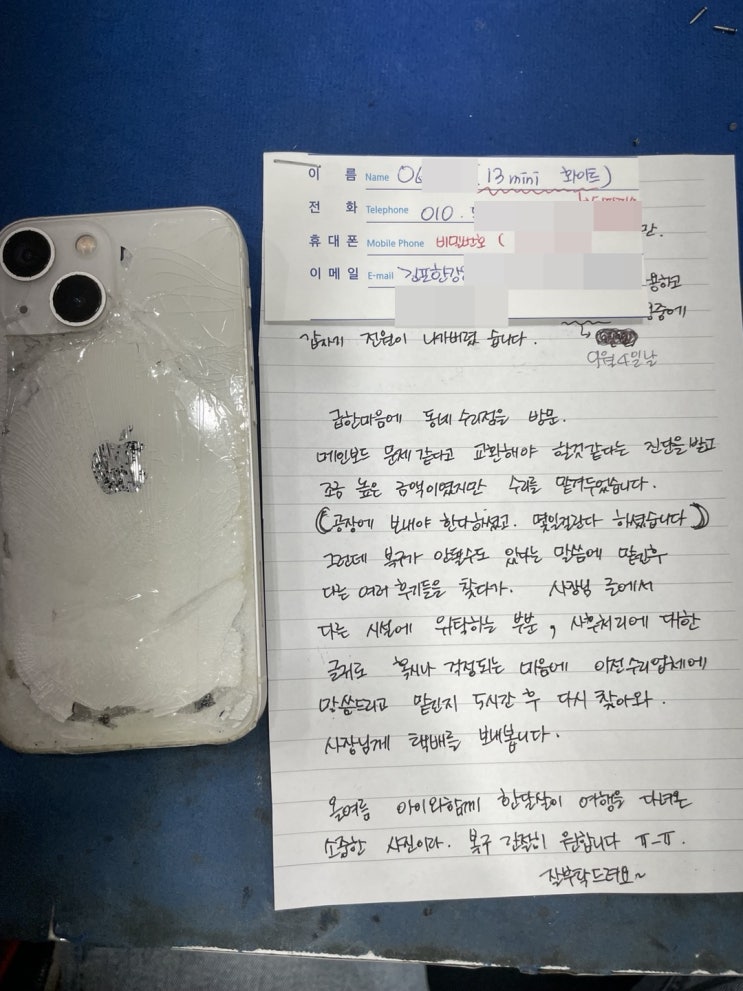 이 름 Name 06 (13 mini 화이트)
전 화 Telephone 010.
휴 대 폰 Mobile Phone 비밀번호 (
이 메 일 E-mail 김포한강
만.
용하고
중에
갑자기 전원이 나가버렸 습니다.
9월 4일날
급한마음에 동네 수리점을 방문.
메인보드 문제 같다고 교환해야 할것같다는 진단을 받고
조금 높은 금액이였지만 수리를 맡겨두었습니다.
(공장에 보내야 한다하셨고. 몇일걸린다 하셨습니다)
그런데 복구가 안될수도 있다는 말씀에 맡긴후
다른 여러 후기들을 찾다가. 사장님 글에서
다른 시설에 위탁하는 부분, 사후처리에 대한
글귀로 혹시나 걱정되는 마음에 이전수리업체에
말씀드리고 맡긴지 5시간 후 다시 찾아와.
사장님께 택배를 보내봅니다.
올여름 아이와함께 한달살이 여행을 다녀온
소중한 사진이라. 복구 간절히 원합니다 ㅠ-ㅠ.
잘부탁드려요~